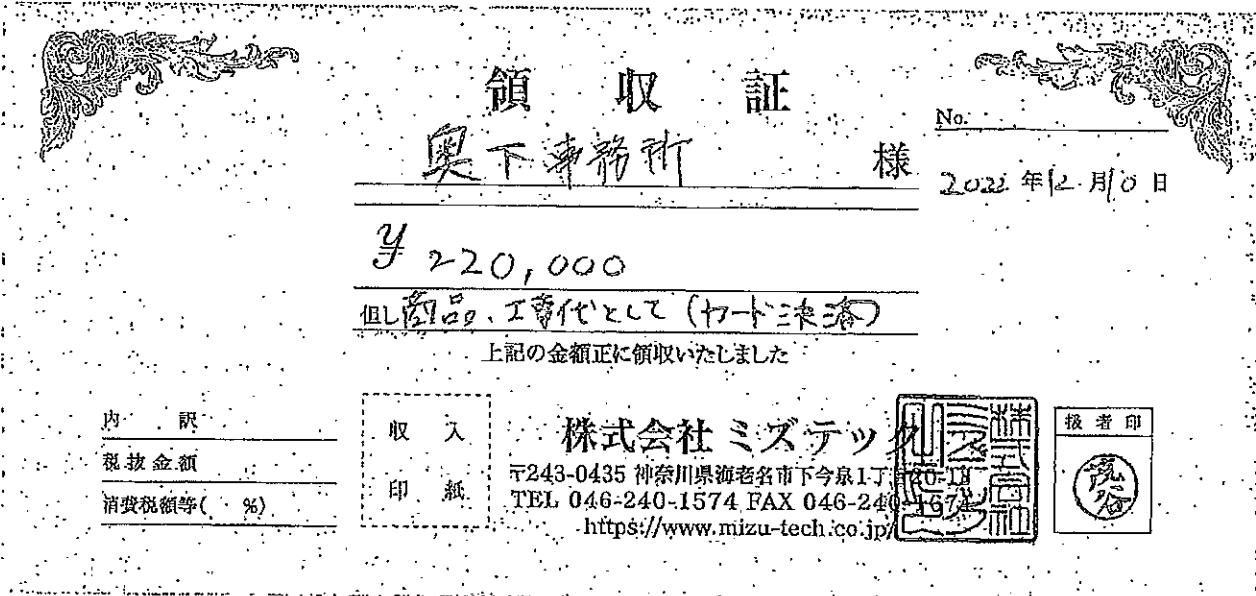 領収証
No.
奥下事務所 様
2022年12月10日
¥220,000
但し商品、工事代として(カード決済)
上記の金額正に領収いたしました
内訳
税抜金額
消費税額等( %)
収入
印紙
株式会社ミズテック
〒243-0435 神奈川県海老名市下今泉1丁 20-18
TEL 046-240-1574 FAX 046-240-1674
https://www.mizu-tech.co.jp/
扱者印